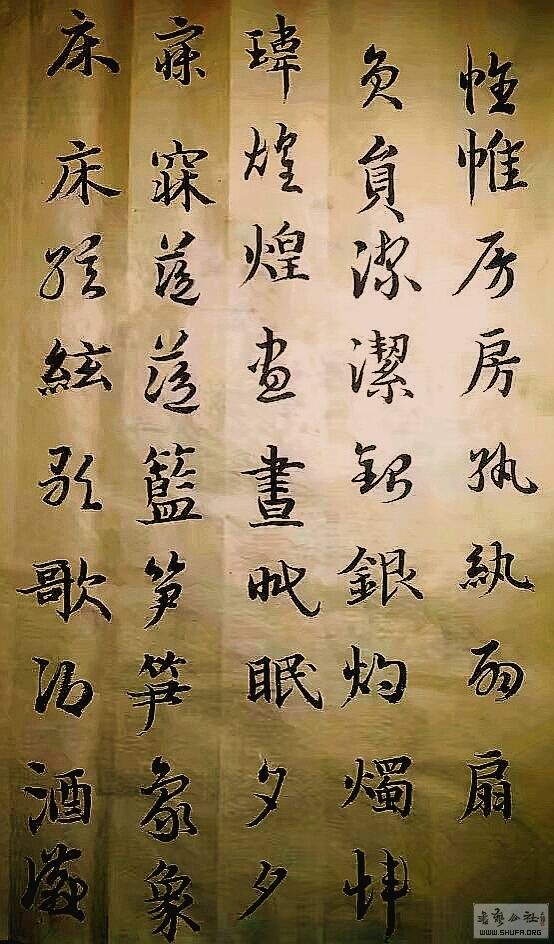 帷帷房房紈紈扇扇
員員潔潔銀銀燭燭煒
瑋煌煌晝晝眠眠夕夕
寐寐藍藍籃笋笋象象
床床絃絃歌歌酒酒讌
书家公社
WWW.SHUFA.ORG